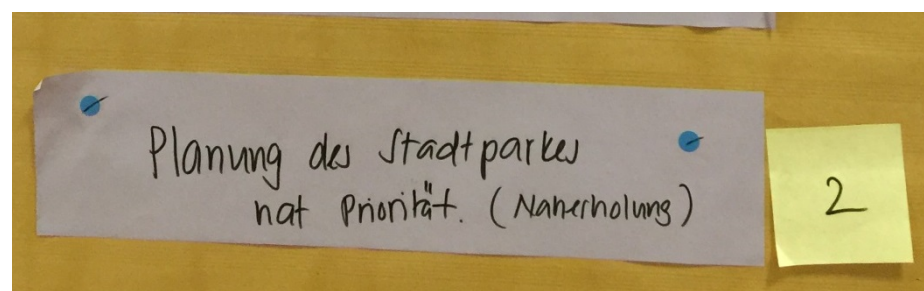 Planung des Stadtparkes
hat Priorität. (Naherholung)
2